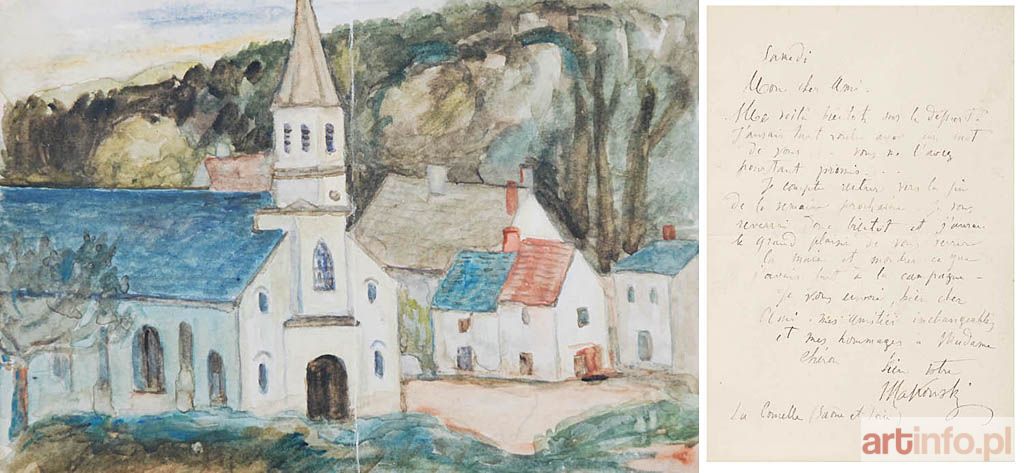 Samedi
Mon cher Ami.
Me voilà bientôt sur le départ!
J'aurais tant voulu avoir un mot
de vous... vous me l'avez
pourtant promis....
Je compte rentrer vers la fin
de la semaine prochaine. Je vous
reverrai donc bientôt et j'aurai
le grand plaisir de vous serrer
la main et montrer ce que
j'avais fait à la campagne –
Je vous envoie, bien cher
Ami. mes amitiés inchangeables
et mes hommages à Madame
Chéron
bien votre
Makowski
La Comelle (Saone et Loire)
artinfo.pl